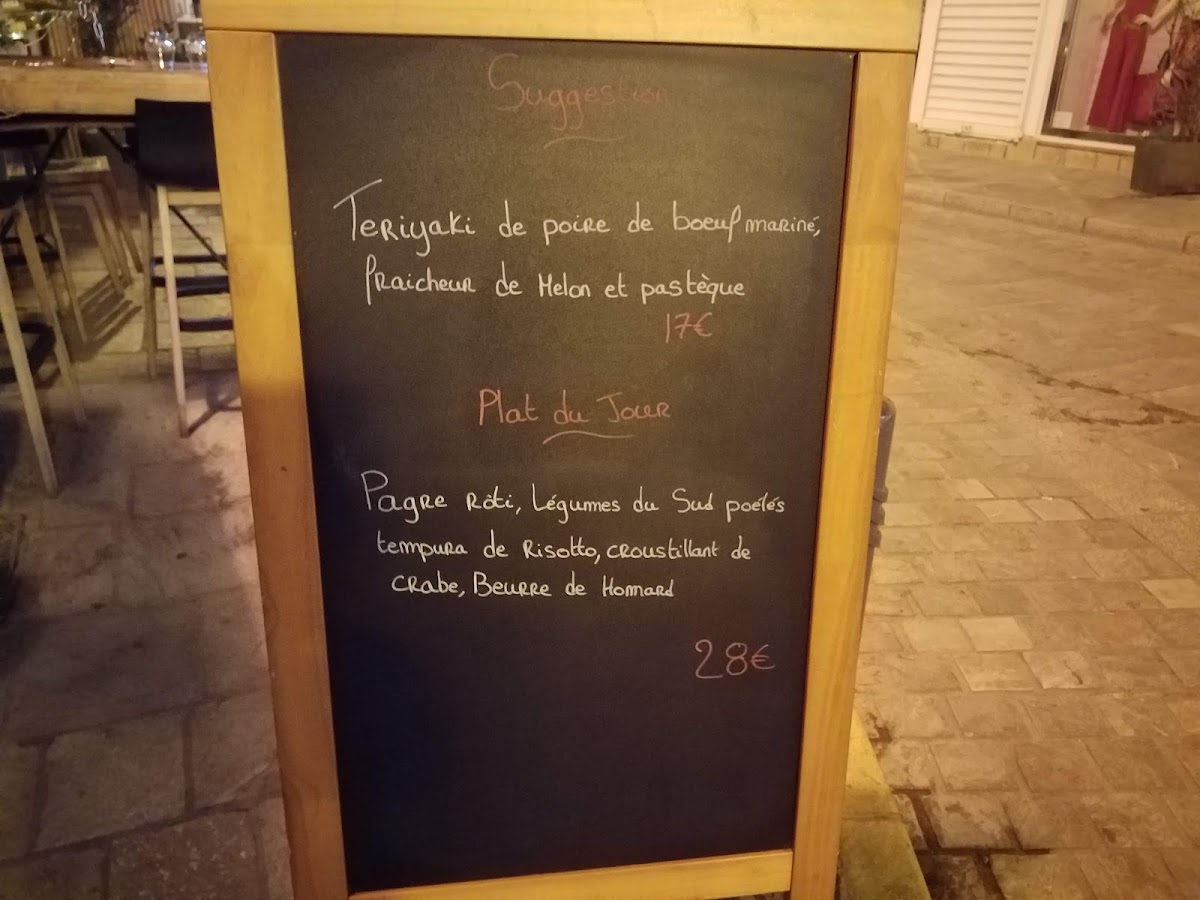 Suggestion
Teriyaki de poire de boeuf mariné,
fraicheur de Melon et pastèque
17€
Plat du Jour
Pagre Rôti, Légumes du Sud poélés
tempura de Risotto, croustillant de
crabe, Beurre de Homard
28€